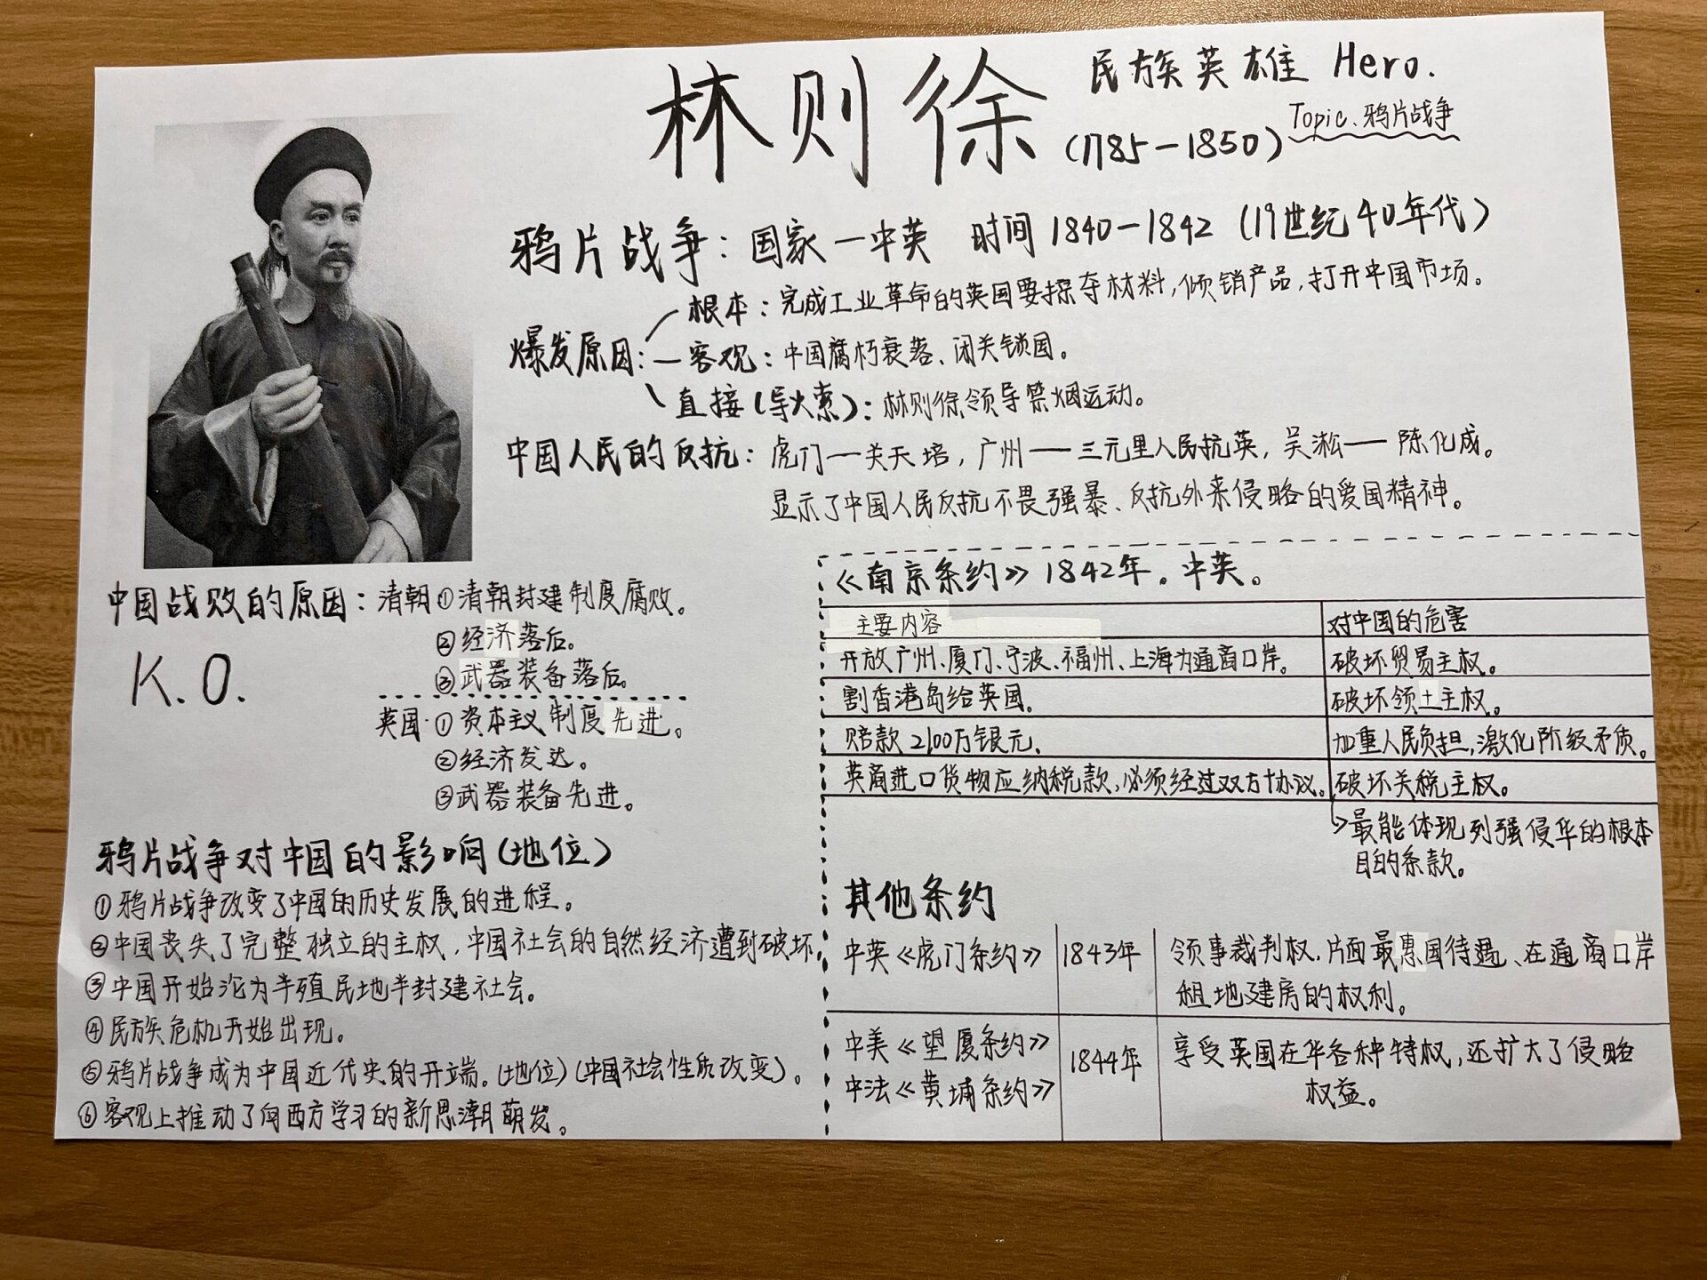 林则徐 民族英雄 Hero.
(1785-1850) Topic、鸦片战争
鸦片战争：国家—中英 时间 1840-1842 (19世纪40年代)
爆发原因：
根本：完成工业革命的英国要掠夺材料,倾销产品,打开中国市场。
客观：中国腐朽衰落、闭关锁国。
直接(导火索)：林则徐领导禁烟运动。
中国人民的反抗：虎门—关天培，广州——三元里人民抗英，吴淞——陈化成。
显示了中国人民反抗不畏强暴、反抗外来侵略的爱国精神。
中国战败的原因：清朝①清朝封建制度腐败。
②经济落后。
③武器装备落后。
K.O.
英国·①资本主义制度先进。
②经济发达。
③武器装备先进。
鸦片战争对中国的影响(地位)
①鸦片战争改变了中国的历史发展的进程。
②中国丧失了完整独立的主权,中国社会的自然经济遭到破坏。
③中国开始沦为半殖民地半封建社会。
④民族危机开始出现。
⑤鸦片战争成为中国近代史的开端。(地位)(中国社会性质改变)。
⑥客观上推动了向西方学习的新思潮萌发。
《南京条约》1842年。中英。
主要内容 对中国的危害
开放广州、厦门、宁波、福州、上海为通商口岸。 破坏贸易主权。
割香港岛给英国。 破坏领土主权。
赔款2100万银元、 加重人民负担,激化阶级矛质。
英商进口货物应纳税款,必须经过双方协议。 破坏关税主权。
最能体现列强侵华的根本
目的条款。
其他条约
中英《虎门条约》 1843年 领事裁判权、片面最惠国待遇、在通商口岸
租地建房的权利。
中美《望厦条约》 1844年 享受英国在华各种特权,还扩大了侵略
中法《黄埔条约》 权益。